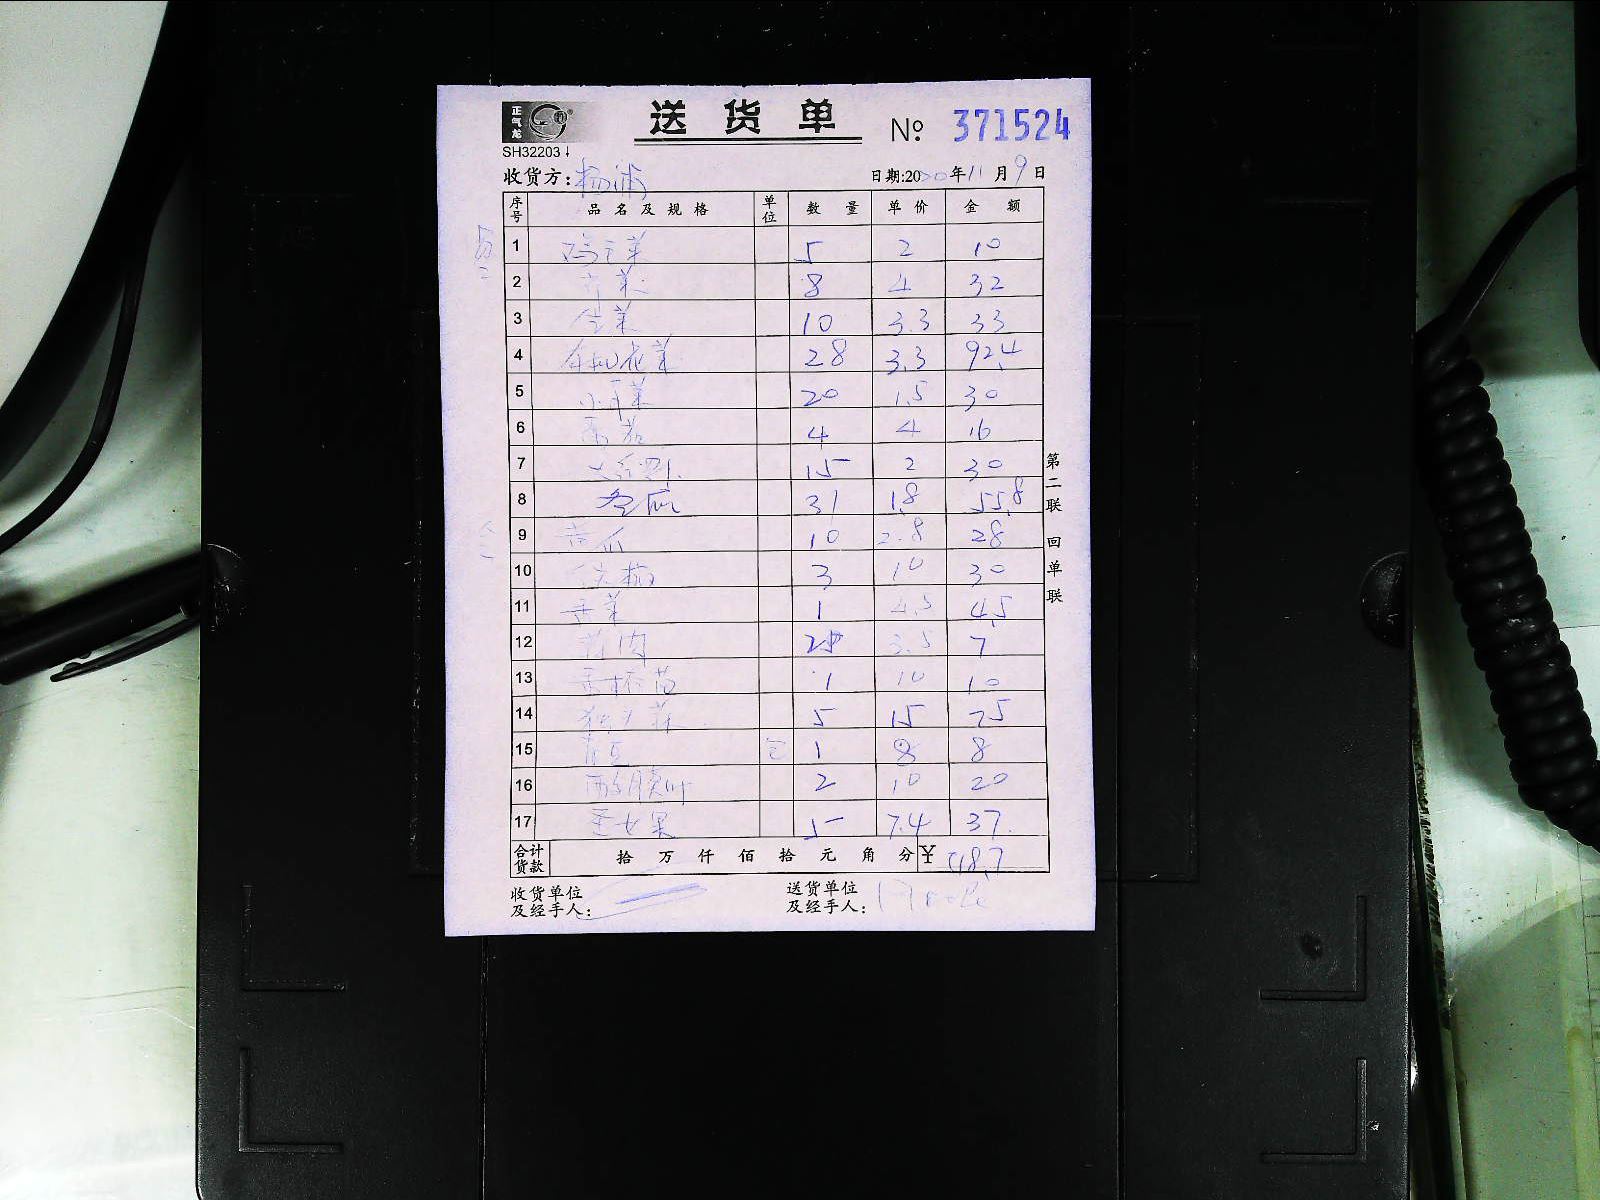 正气龙
送货单
№ 371524
SH32203
收货方: 杨浦
日期:2020年11月9日
序号 品名及规格 单位 数量 单价 金额
1 鸡毛菜 5 2 10
2 芹菜 8 4 32
3 生菜 10 3.3 33
4 有机花菜 28 3.3 92.4
5 20 1.5 30
6 番茄 4 4 16
7 15 2 30
8 冬瓜 31 1.8 55.8
9 苦瓜 10 2.8 28
10 3 10 30
11 香菜 1 4.5 4.5
12 3.5 7
13 1 10 10
14 5 15 75
15 包 1 8 8
16 2 10 20
17 圣女果 5 7.4 37
合计货款 拾 万 仟 佰 拾 元 角 分 ¥ 518.7
收货单位及经手人:
送货单位及经手人:
第二联 回单联